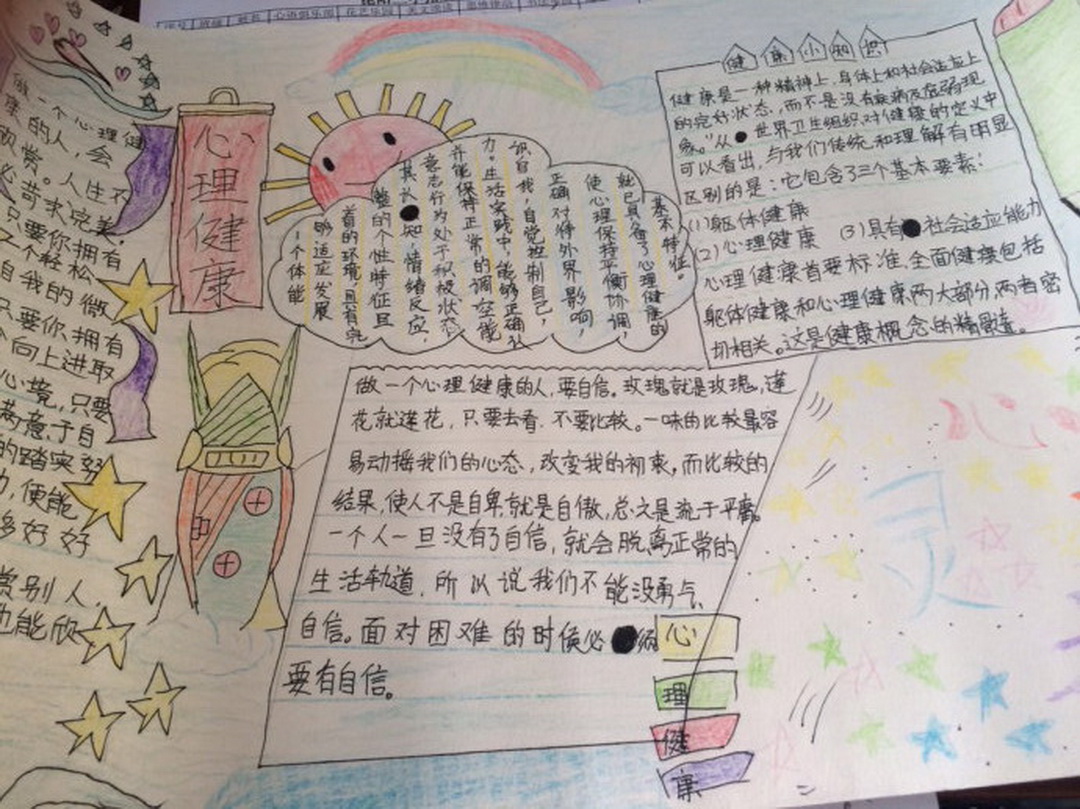 心理健康
做一个心理健
康的人,会
欣赏。人生不
必苛求完美,
只要你拥有
一个轻松
自我的微
只要你拥有
向上进取
心境,只要
满意于自
的踏实努
力,便能
多好好
赏别人,
也能欣
一个体能
够适应发展
着的环境,具有完
整的个性特征且
其认●知,情绪反应,
意志行为处于积极状态,
并能保持正常的调空能
力。生活实践中,能够正确认
识自我,自觉控制自己,
正确对待外界影响,
使心理保持平衡协调,
就已具备了心理健康的
基本特征。
健康小知识
健康是一种精神上,身体上和社会适应上
的完好状态,而不是没有疾病及虚弱现
象。”从●世界卫生组织对健康的定义中
可以看出,与我们传统和理解有明显
区别的是:它包含了三个基本要素:
(1)躯体健康
(2)心理健康 (3)具有●社会适应能力
心理健康首要标准,全面健康包括
躯体健康和心理健康两大部分,两者密
切相关。这是健康概念的精髓。
做一个心理健康的人,要自信。玫瑰就是玫瑰,莲
花就莲花,只要去看,不要比较。一味的比较最容
易动摇我们的心态,改变我的初衷,而比较的
结果,使人不是自卑,就是自傲,总之是流于平庸。
一个人一旦没有了自信,就会脱离正常的
生活轨道,所以说我们不能没勇气、
自信。面对困难的时候必●须
要有自信。
心
理
健
康
心
灵